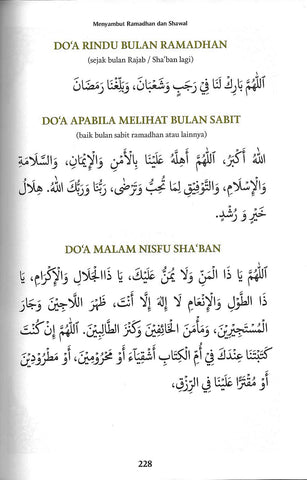 Menyambut Ramadhan dan Shawal
DO‘A RINDU BULAN RAMADHAN
(sejak bulan Rajab / Sha‘ban lagi)
اَللّٰهُمَّ بَارِكْ لَنَا فِيْ رَجَبٍ وَشَعْبَانَ، وَبَلِّغْنَا رَمَضَانَ
DO‘A APABILA MELIHAT BULAN SABIT
(baik bulan sabit ramadhan atau lainnya)
اَللهُ أَكْبَرُ، اَللّٰهُمَّ أَهِلَّهُ عَلَيْنَا بِالْأَمْنِ وَالْإِيْمَانِ، وَالسَّلَامَةِ
وَالْإِسْلَامِ، وَالتَّوْفِيْقِ لِمَا تُحِبُّ وَتَرْضَى، رَبُّنَا وَرَبُّكَ اللهُ. هِلَالُ
خَيْرٍ وَ رُشْدٍ.
DO‘A MALAM NISFU SHA‘BAN
اَللّٰهُمَّ يَا ذَا الْمَنِّ وَلَا يُمَنُّ عَلَيْكَ، يَا ذَا الْجَلَالِ وَالْإِكْرَامِ، يَا
ذَا الطَّوْلِ وَالْإِنْعَامِ لَا إِلٰهَ إِلَّا أَنْتَ، ظَهْرَ اللَّاجِيْنَ وَجَارَ
الْمُسْتَجِيْرِيْنَ، وَمَأْمَنَ الْخَائِفِيْنَ وَكَنْزَ الطَّالِبِيْنَ. اَللّٰهُمَّ إِنْ كُنْتَ
كَتَبْتَنَا عِنْدَكَ فِيْ أُمِّ الْكِتَابِ أَشْقِيَاءَ أَوْ مَحْرُوْمِيْنَ، أَوْ مَطْرُوْدِيْنَ
أَوْ مُقْتَرًّا عَلَيْنَا فِي الرِّزْقِ،
228